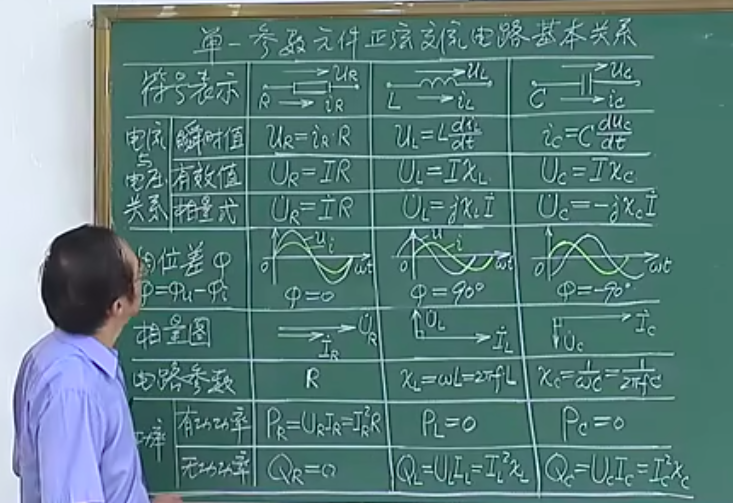 单一参数元件正弦交流电路基本关系
符号表示 R u_R i_R L u_L i_L C u_C i_C
电流与电压关系
瞬时值 u_R=i_R·R u_L=L di_L/dt i_C=C du_C/dt
有效值 U_R=IR U_L=IX_L U_C=IX_C
相量式 U̇_R=İR U̇_L=jX_Lİ U̇_C=-jX_Cİ
位差φ 0 u i ωt 0 u i ωt 0 ωt
φ=φu-φi φ=0 φ=90° φ=-90°
相量图 U̇_R İ_R U̇_L İ_L U̇_C İ_C
电路参数 R X_L=ωL=2πfL X_C=1/ωC=1/2πfC
功率
有功功率 P_R=U_RI_R=I_R²R P_L=0 P_C=0
无功功率 Q_R=0 Q_L=U_LI_L=I_L²X_L Q_C=U_CI_C=I_C²X_C